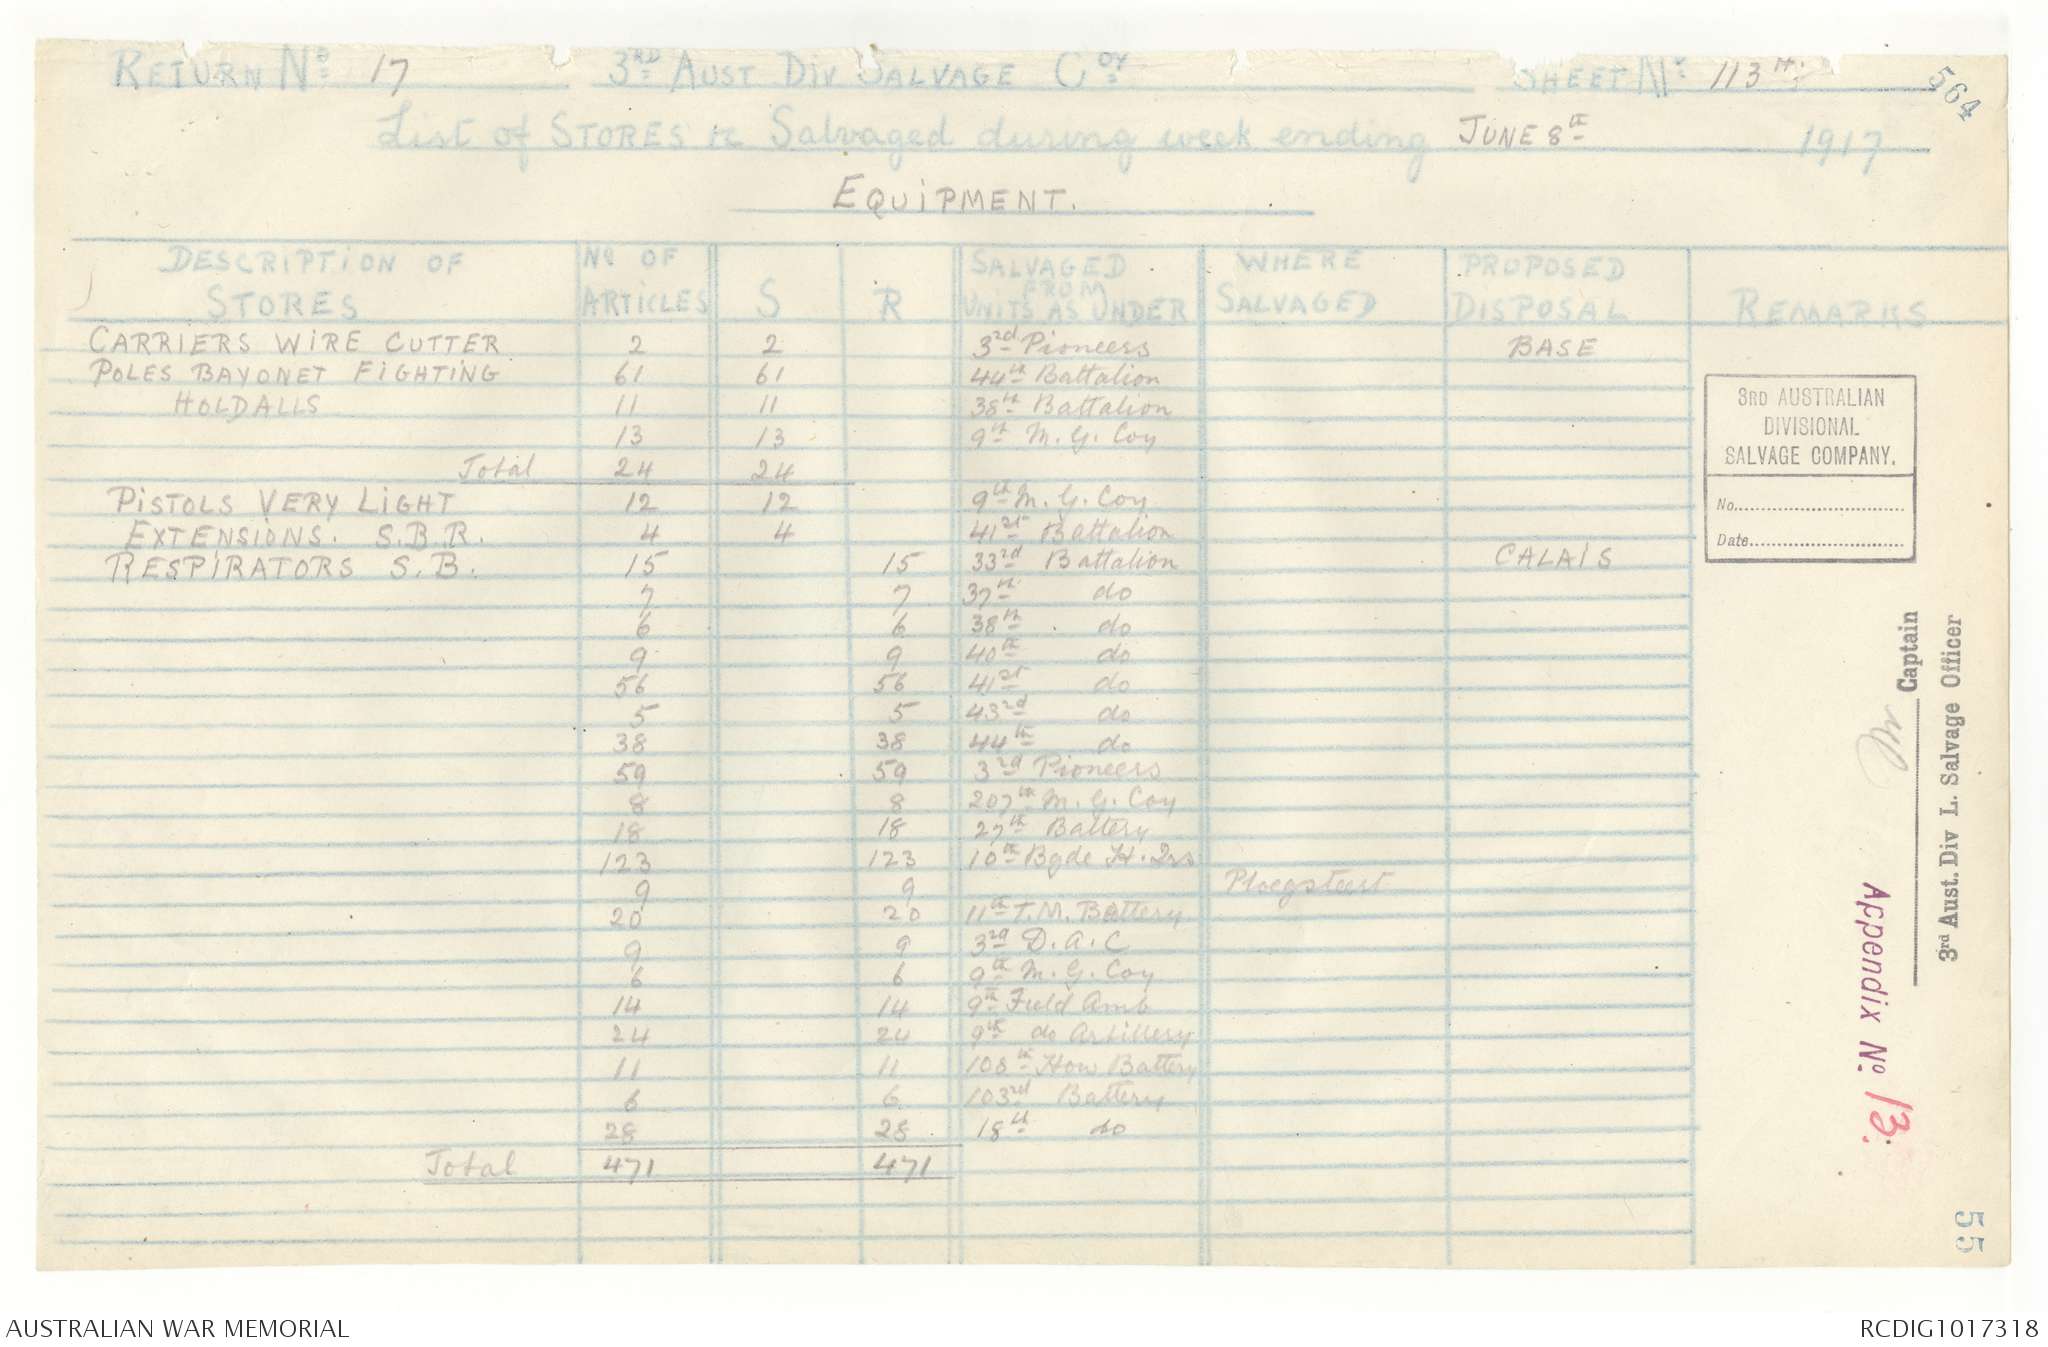 RETURN No 17 3RD AUST DIV SALVAGE COY SHEET No 113 H.
564
List of STORES &c Salvaged during week ending JUNE 8th 1917
EQUIPMENT.
DESCRIPTION OF STORES No OF ARTICLES S R SALVAGED FROM UNITS AS UNDER WHERE SALVAGED PROPOSED DISPOSAL REMARKS
CARRIERS WIRE CUTTER 2 2 3rd Pioneers BASE
POLES BAYONET FIGHTING 61 61 44th Battalion
HOLDALLS 11 11 38th Battalion
13 13 9th M. G. Coy
Total 24 24
PISTOLS VERY LIGHT 12 12 9th M. G. Coy
EXTENSIONS. S.B.R. 4 4 41st Battalion
RESPIRATORS S.B. 15 15 33rd Battalion CALAIS
7 7 37th do
6 6 38th do
9 9 40th do
56 56 41st do
5 5 43rd do
38 38 44th do
59 59 3rd Pioneers
8 8 207th M. G. Coy
18 18 27th Battery
123 123 10th Bgde H. Qrs
9 9 Ploegsteert
20 20 11th T.M. Battery
9 9 3rd D.A.C
6 6 9th M. G. Coy
14 14 9th Field Amb
24 24 9th do Artillery
11 11 108th How Battery
6 6 103rd Battery
28 28 18th do
Total 471 471
3RD AUSTRALIAN
DIVISIONAL
SALVAGE COMPANY.
No.
Date
Captain
3rd Aust. Div L. Salvage Officer
Appendix No. 13.
55
AUSTRALIAN WAR MEMORIAL RCDIG1017318